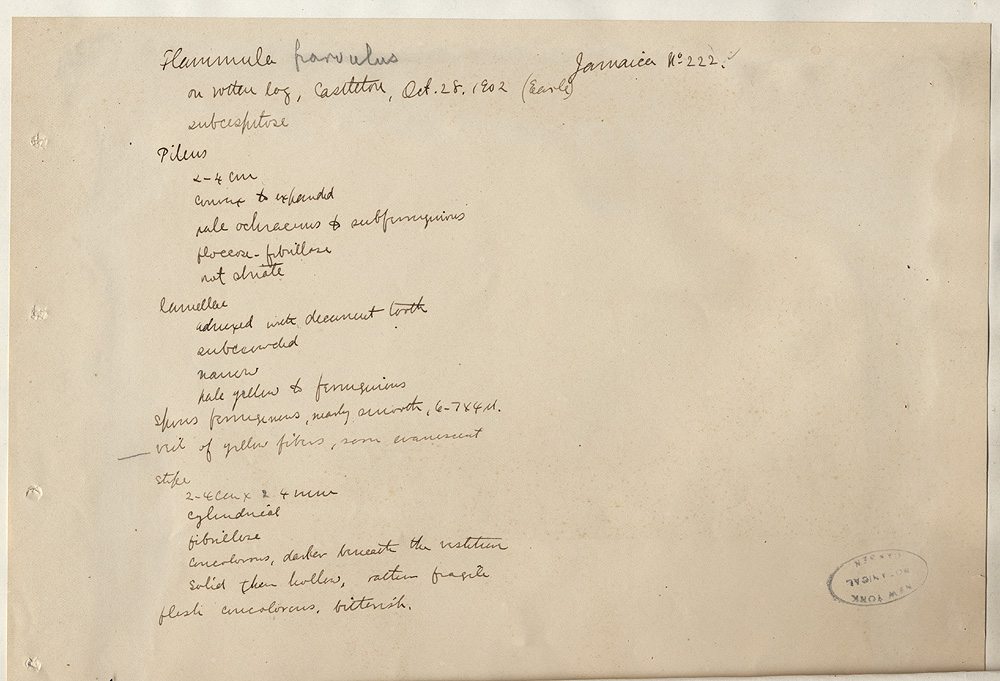 Flammula parvulus Jamaica No 222.
on rotten log, Castleton, Oct. 28, 1902 (Earle)
subcespitose
Pileus
2-4 cm
convex to expanded
pale ochraceus to subferruginous
floccose-fibrillose
not striate
lamellae
adnexed with decurrent tooth
subcrowded
narrow
pale yellow to ferruginous
Spores ferruginous, nearly smooth, 6-7x4µ.
veil of yellow fibers, soon evanescent
stipe
2-4cm x 2 4 mm
cylindrical
fibrillose
concolorous, darker beneath the vestiture
solid then hollow, rather fragile
flesh concolorous, bitterish.
NEW YORK
BOTANICAL
GARDEN